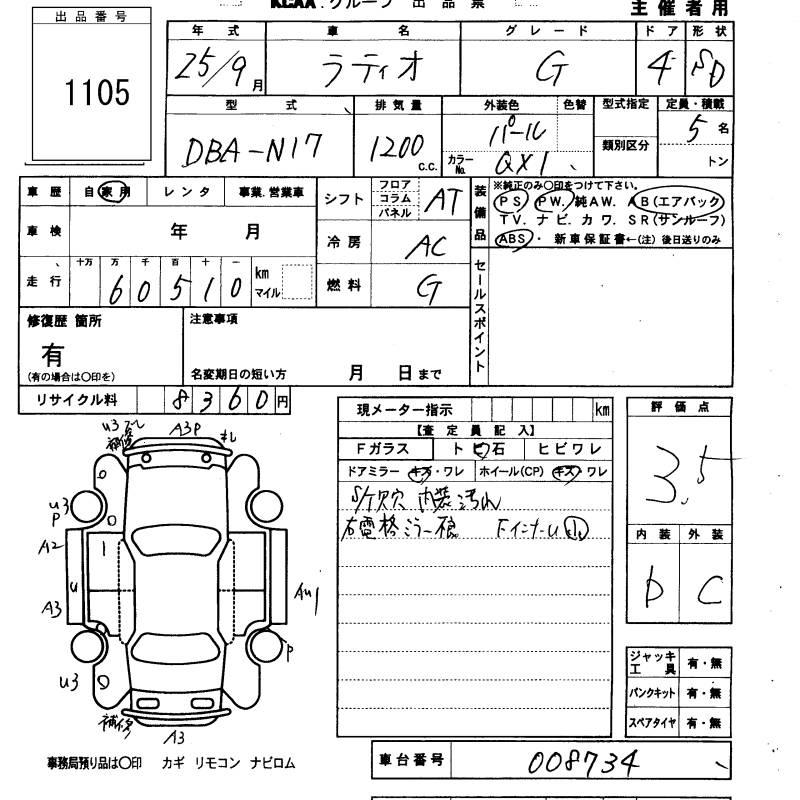 KCAA.グループ 出品票 主催者用
出品番号
1105
年式 車名 グレード ドア 形状
25/9月 ラティオ G 4 SD
型式 排気量 外装色 色替 型式指定 定員・積載
DBA-N17 1200 c.c. パール 類別区分 5名
カラーNo. QX1 トン
車歴 自家用 レンタ 事業.営業車 シフト フロア コラム パネル AT
装備品 ※純正のみ〇印をつけて下さい。
PS PW. 純AW. AB(エアバック)
TV. ナビ. カワ. SR(サンルーフ)
ABS・ 新車保証書←(注) 後日送りのみ
車検 年 月 冷房 AC
走行 十万 万 千 百 十 一 km マイル
60510
燃料 G
セールスポイント
修復歴 箇所 注意事項
有
(有の場合は〇印を) 名変期日の短い方 月 日まで
リサイクル料 8360円
現メーター指示 km 評価点
【査定員記入】 3.5
Fガラス トビ石 ヒビワレ
ドアミラー キズ・ワレ ホイール(CP) キズ・ワレ
S/ケ欠穴 内装汚れ
右電格ミラー
内装 外装
D C
U3 補修 A3P
U3 P
A2
U
A3 AU1
P
U3
補修 A3
ジャッキ工具 有・無
パンクキット 有・無
スペアタイヤ 有・無
事務局預り品は〇印 カギ リモコン ナビロム
車台番号 008734